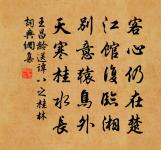 客心仍在楚
江館復臨湘
別意猿鳥外
天寒桂水長
王昌齡送譚八之桂林
詞典網集